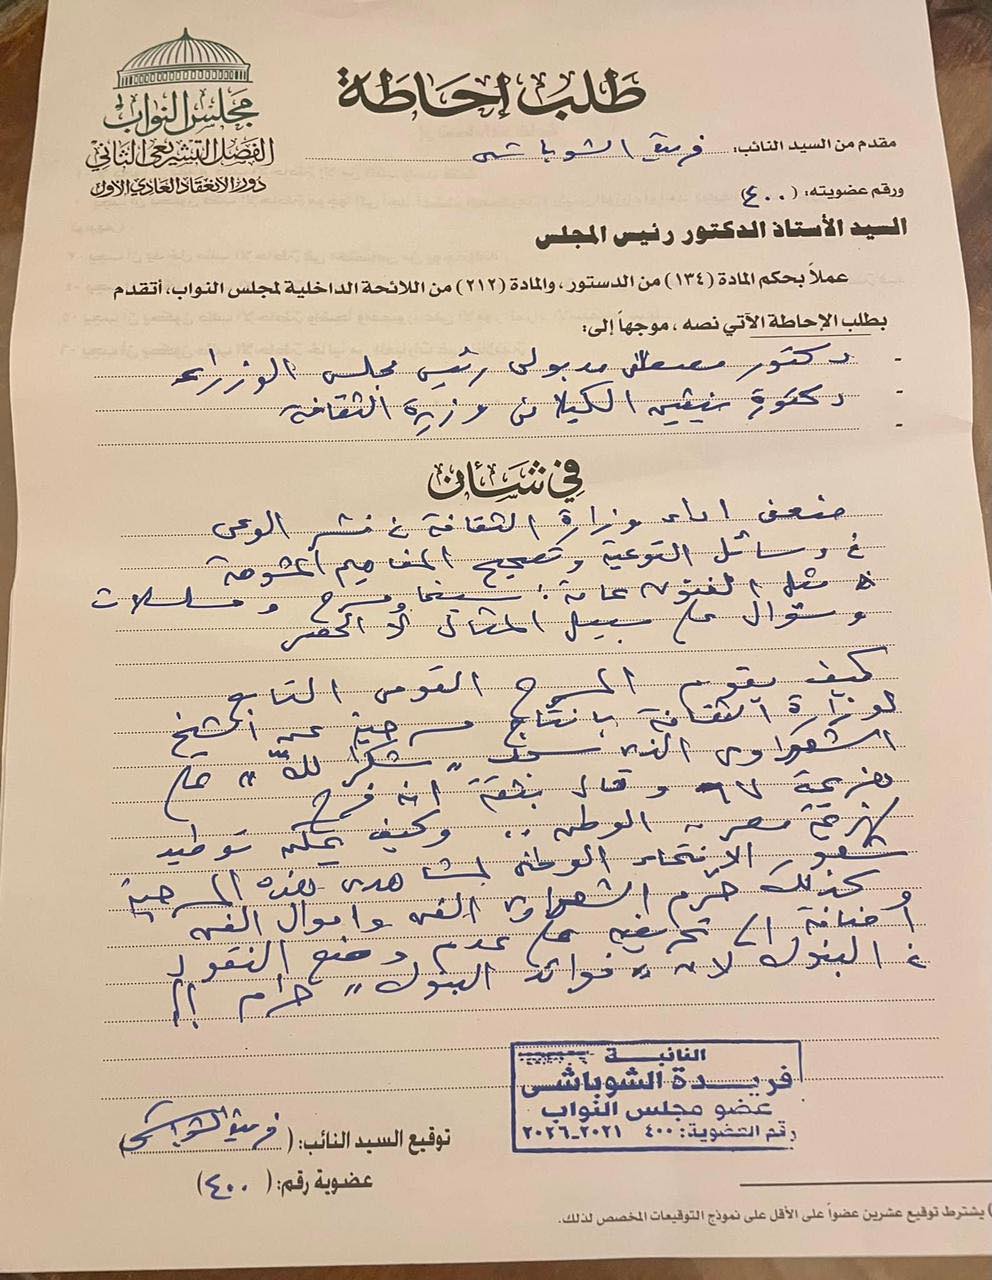 مجلس النواب
الفصل التشريعي الثاني
دور الانعقاد العادي الأول
طلب إحاطة
مقدم من السيد النائب: فريدة الشوباشى
ورقم عضويته: (٤٠٠)
السيد الأستاذ الدكتور رئيس المجلس
عملاً بحكم المادة (١٣٤) من الدستور، والمادة (٢١٢) من اللائحة الداخلية لمجلس النواب، أتقدم
بطلب الإحاطة الآتي نصه، موجهاً إلى:
- دكتور مصطفى مدبولى رئيس مجلس الوزراء
- دكتورة نيفين الكيلانى وزيرة الثقافة
-
في شأن
ضعف اداء وزارة الثقافة فى نشر الوعى
فى وسائل التوعية وتصحيح المفاهيم المشوهة
مثل الفنون عامة: سينما ومسرح ومسلسلات
وسؤال على سبيل المثال لا الحصر
كيف يقوم المسرح القومى التابع
لوزارة الثقافة بانتاج مسرحية عن الشيخ
الشعراوى الذى سجد "شكرا لله" على
هزيمة ٦٧ وقال بثقة انه فرح
لهزيمة مصر الوطن .. وكيف يمكن توطيد
شعور الانتماء الوطنى لمشاهدى هذه المسرحية
كذلك حرم الشعراوى الفن واموال الفن
أضافة الى تحريضه على عدم وضع النقود
فى البنوك لان "فوائد البنوك" حرام !!
النائبة
فريدة الشوباشى
عضو مجلس النواب
رقم العضوية: ٤٠٠ ٢٠٢١-٢٠٢٦
توقيع السيد النائب: (فريدة الشوباشى)
عضوية رقم: (٤٠٠)
) يشترط توقيع عشرين عضواً على الأقل على نموذج التوقيعات المخصص لذلك.